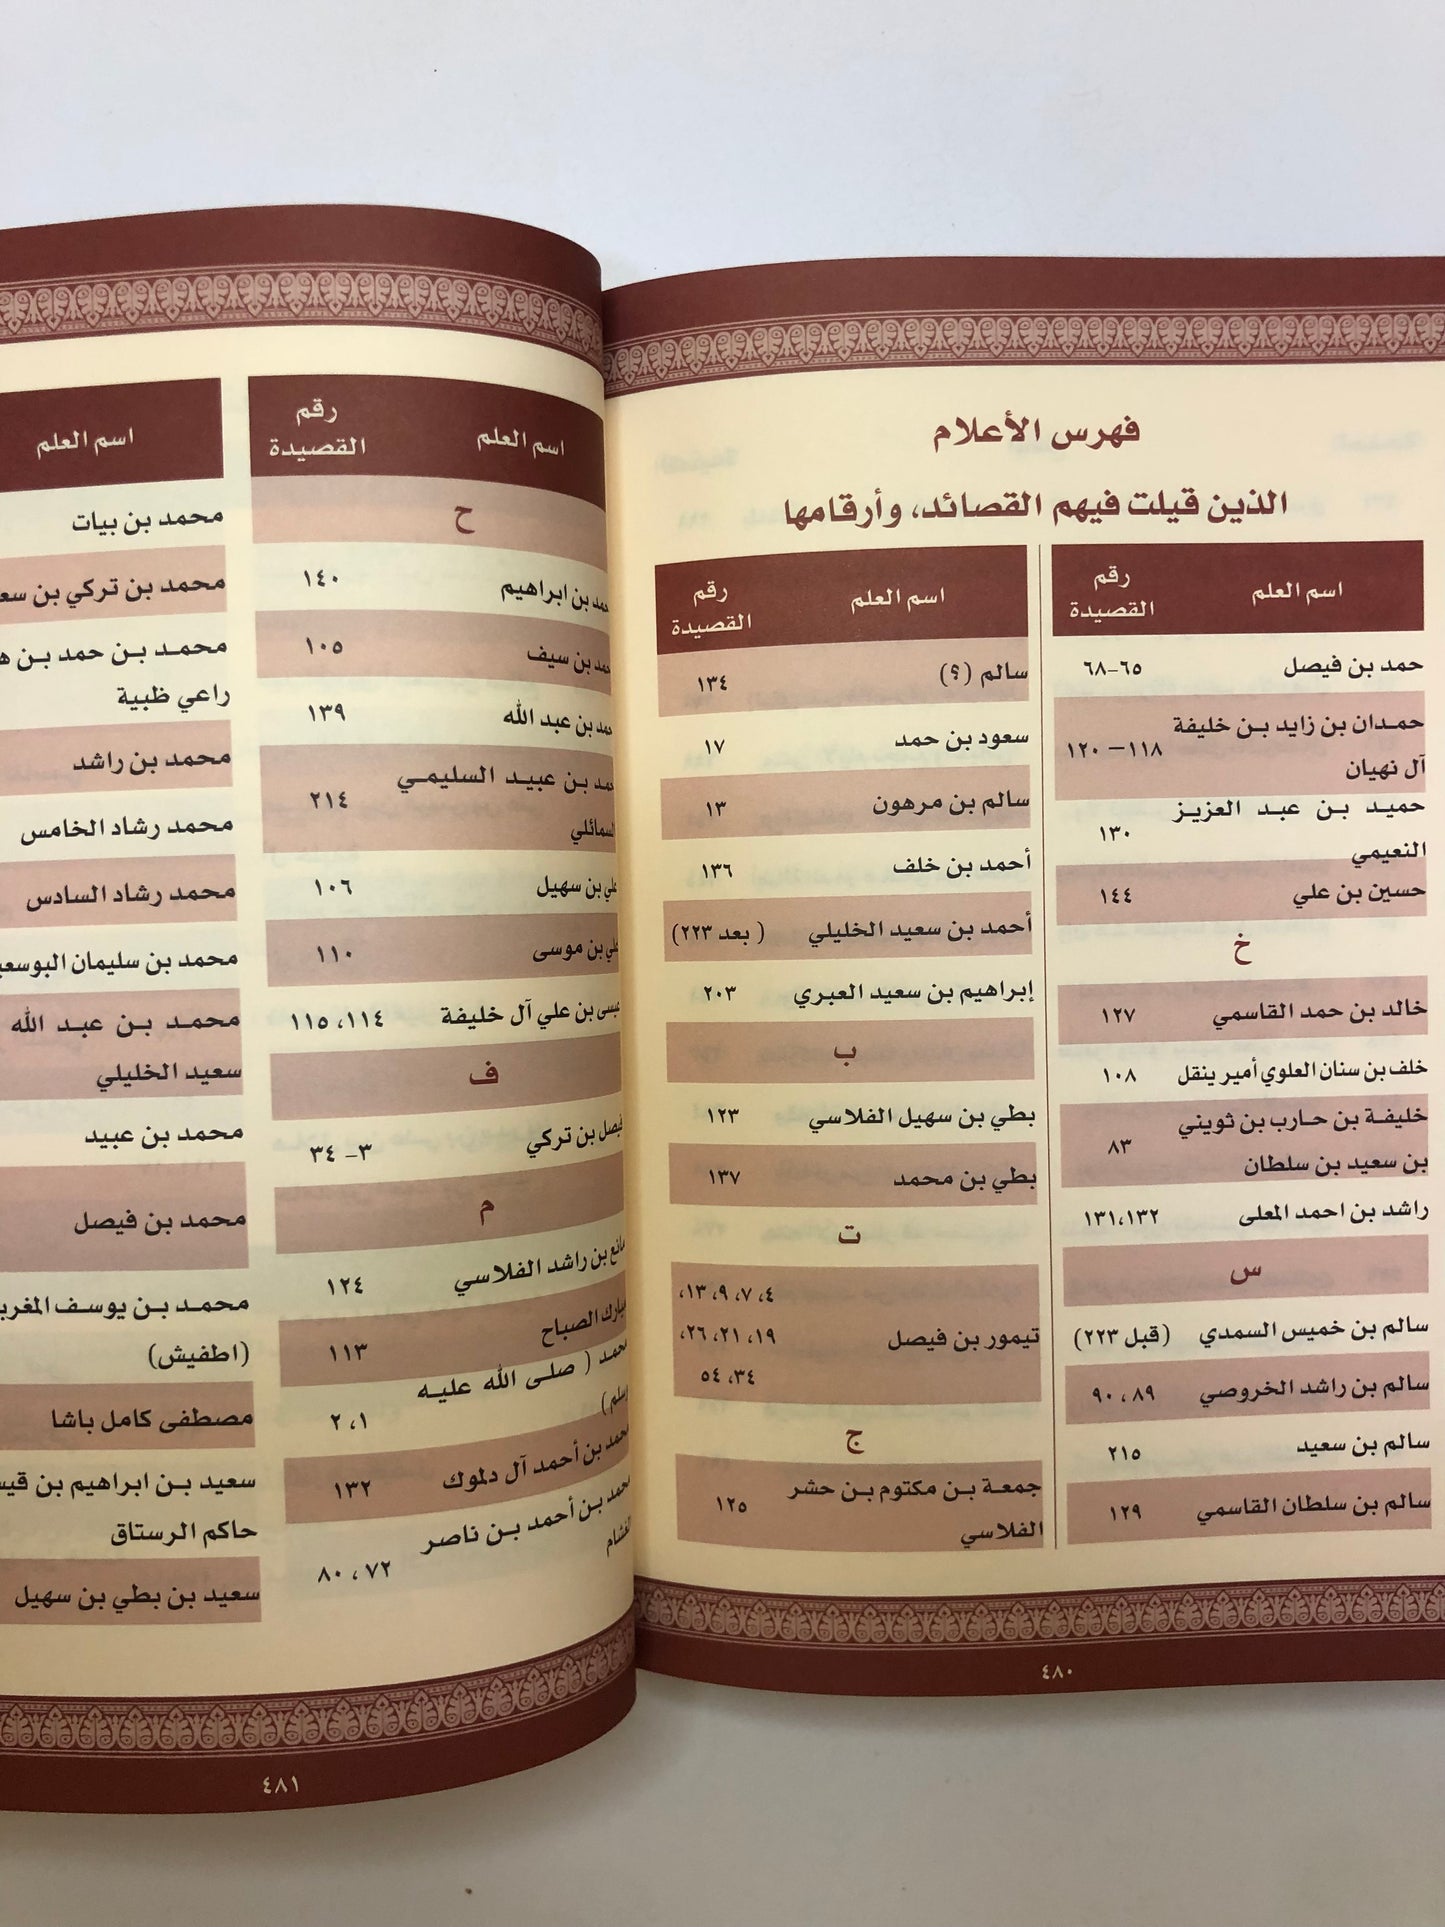 فهرس الأعلام
الذين قيلت فيهم القصائد، وأرقامها
اسم العلم رقم القصيدة
حمد بن فيصل ٦٥-٦٨
حمدان بن زايد بن خليفة
آل نهيان ١١٨ – ١٢٠
حميد بن عبد العزيز
النعيمي ١٣٠
حسين بن علي ١٤٤
خ
خالد بن حمد القاسمي ١٢٧
خلف بن سنان العلوي أمير ينقل ١٠٨
خليفة بن حارب بن ثويني
بن سعيد بن سلطان ٨٣
راشد بن احمد المعلى ١٣١،١٣٢
س
سالم بن خميس السمدي (قبل ٢٢٣)
سالم بن راشد الخروصي ٨٩ ، ٩٠
سالم بن سعيد ٢١٥
سالم بن سلطان القاسمي ١٢٩
اسم العلم رقم القصيدة
سالم (؟) ١٣٤
سعود بن حمد ١٧
سالم بن مرهون ١٣
أحمد بن خلف ١٣٦
أحمد بن سعيد الخليلي ( بعد ٢٢٣)
إبراهيم بن سعيد العبري ٢٠٣
ب
بطي بن سهيل الفلاسي ١٢٣
بطي بن محمد ١٣٧
ت
تيمور بن فيصل ٤، ٧، ٩، ١٣،
١٩، ٢١، ٢٦،
٣٤، ٥٤
ج
جمعة بن مكتوم بن حشر
الفلاسي ١٢٥
٤٨٠
اسم العلم رقم القصيدة
ح
حمد بن ابراهيم ١٤٠
حمد بن سيف ١٠٥
حمد بن عبد الله ١٣٩
حمد بن عبيد السليمي
السمائلي ٢١٤
علي بن سهيل ١٠٦
علي بن موسى ١١٠
عيسى بن علي آل خليفة ١١٤، ١١٥
ف
فيصل بن تركي ٣- ٣٤
م
مانع بن راشد الفلاسي ١٢٤
مبارك الصباح ١١٣
محمد ( صلى الله عليه
وسلم) ١، ٢
محمد بن أحمد آل دلموك ١٣٢
محمد بن أحمد بن ناصر
الغشام ٧٢ ، ٨٠
اسم العلم
محمد بن بيات
محمد بن تركي بن
محمد بن حمد بن
راعي ظبية
محمد بن راشد
محمد رشاد الخامس
محمد رشاد السادس
محمد بن سليمان
محمد بن عبد الله
سعيد الخليلي
محمد بن عبيد
محمد بن فيصل
محمد بن يوسف
(اطفيش)
مصطفى كامل باشا
سعيد بن ابراهيم بن
حاكم الرستاق
سعيد بن بطي بن سهيل
٤٨١